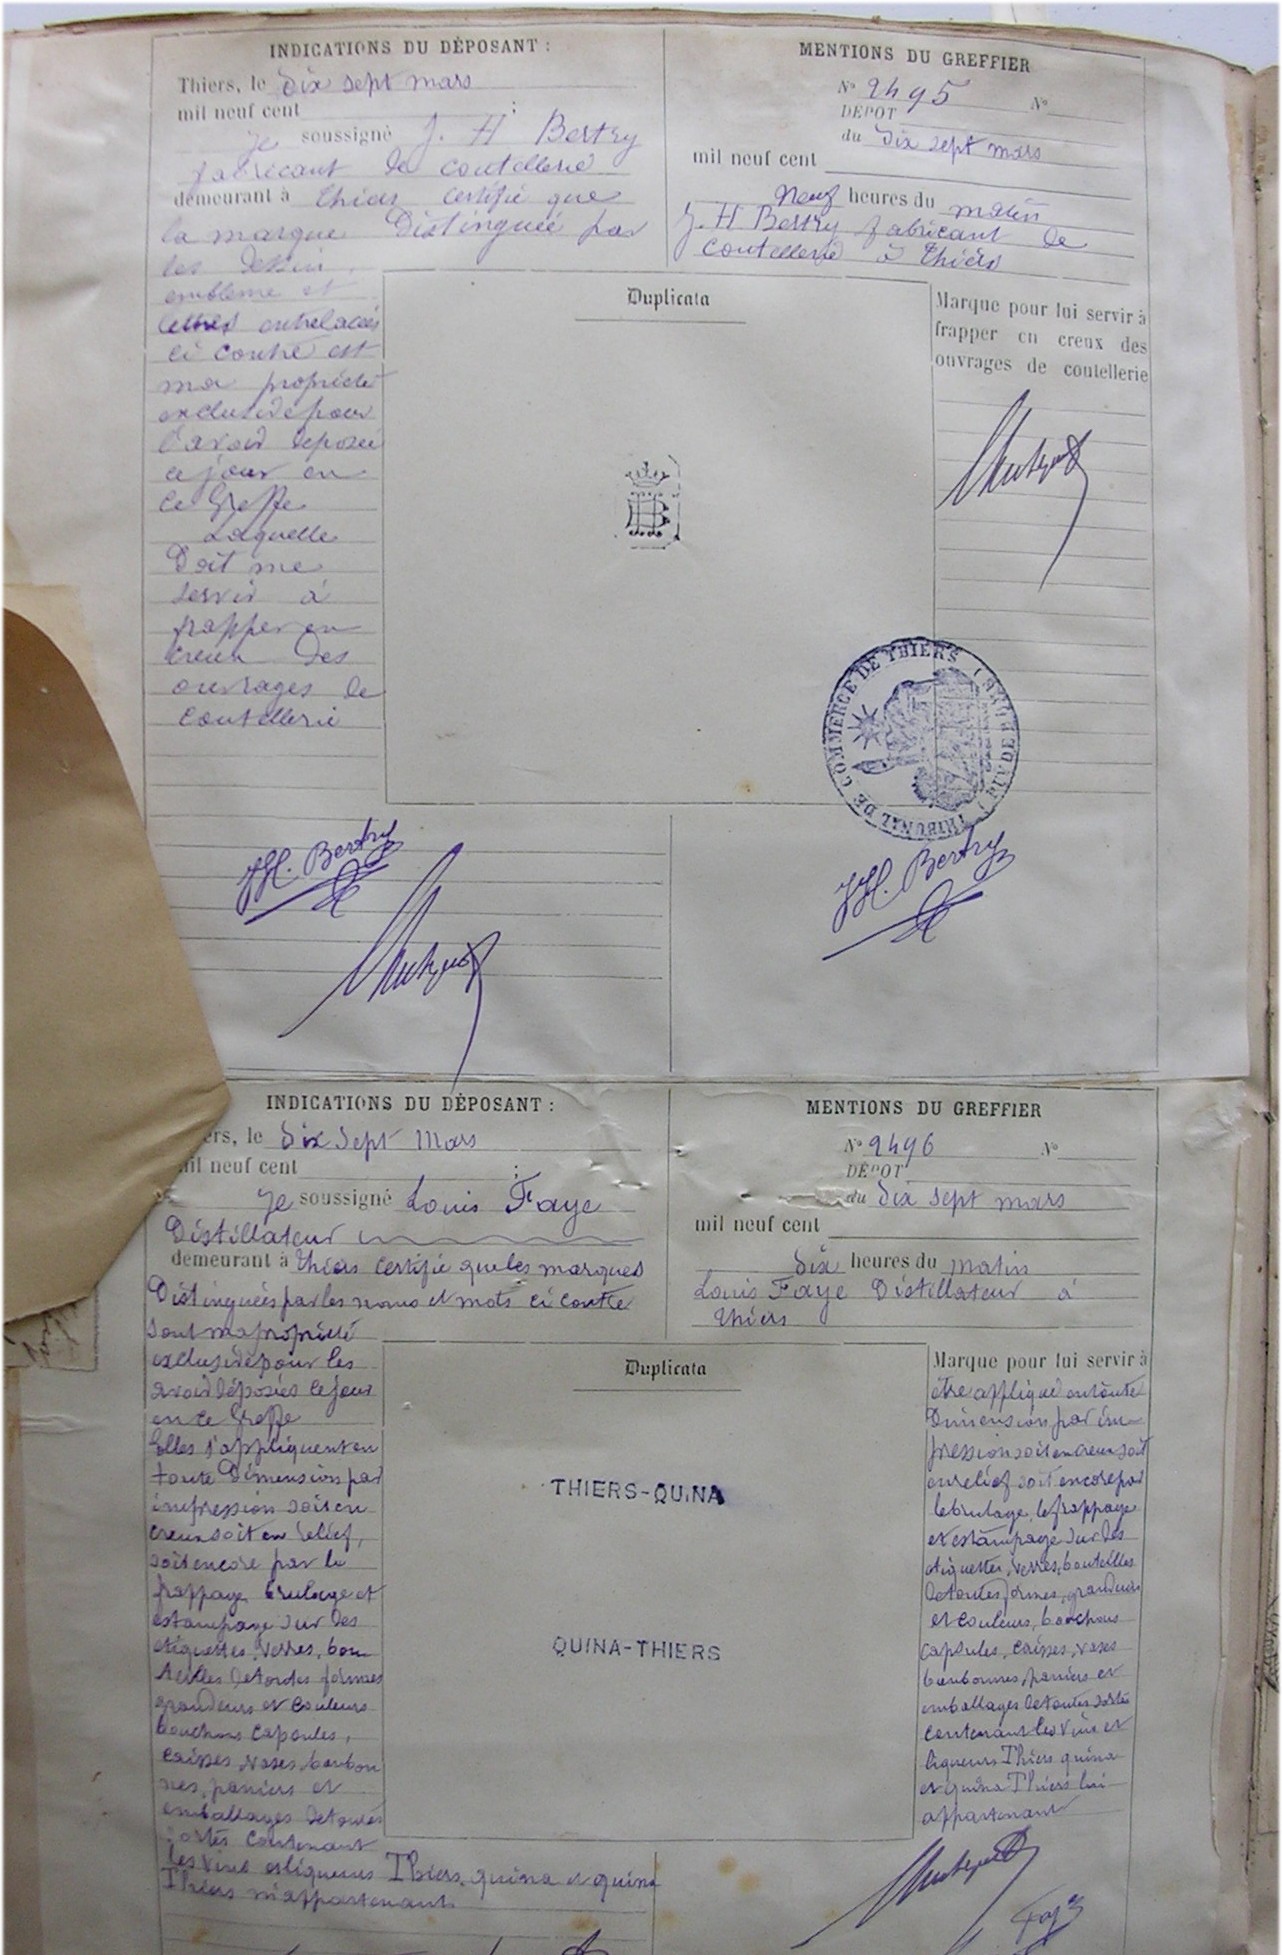 INDICATIONS DU DÉPOSANT :
Thiers, le Dix sept mars
mil neuf cent ;
Je soussigné J. H Bertry
fabricant de coutellerie
demeurant à Thiers certifie que
la marque Distinguée par
les dessin
embleme et
lettres entrelacées
ci contre est
ma propriété
exclusive pour
l'avoir déposée
ce jour en
ce Greffe
Laquelle
Doit me
servir à
frapper en
creux des
ouvrages de
coutellerie
JH. Bertry
MENTIONS DU GREFFIER
N° 2495 N°
DÉPOT
du Dix sept mars
mil neuf cent
Neuf heures du matin
J. H Bertry fabricant de
coutellerie à Thiers
Duplicata
Marque pour lui servir à
frapper en creux des
ouvrages de coutellerie
TRIBUNAL DE COMMERCE DE THIERS
(PUY DE DÔME)
JH. Bertry
INDICATIONS DU DÉPOSANT :
ers, le Dix Sept Mars
mil neuf cent ;
Je soussigné Louis Faye
Distillateur
demeurant à Thiers certifie que les marques
Distinguées par les noms et mots ci contre
sont ma propriété
exclusive pour les
avoir déposées ce jour
en ce Greffe
Elles s'appliquent en
toute Dimension par
impression soit en
creux soit en relief,
soit encore par le
frappage, brulage et
estampage sur des
etiquettes, verres, bou
teilles de toutes formes
grandeurs et couleurs
bouchons capsules,
caisses, vases, bonbon
nes, paniers et
emballages de toutes
sortes contenant
les vins et liqueurs Thiers quina et quina
Thiers m'appartenant
MENTIONS DU GREFFIER
N° 2496 N°
DÉPOT
du Dix sept mars
mil neuf cent
Dix heures du matin
Louis Faye Distillateur à
Thiers
Duplicata
THIERS-QUINA
QUINA-THIERS
Marque pour lui servir à
être appliqué en toute
Dimension par im-
pression soit en creux soit
en relief soit encore par
le brulage, le frappage
et estampage sur des
etiquettes, verres, bouteilles
de toutes formes, grandeurs
et couleurs, bouchons
capsules, caisses, vases
bonbonnes, paniers et
emballages de toutes sortes
contenant les vins et
liqueurs Thiers quina
et quina Thiers lui
appartenant
Faye